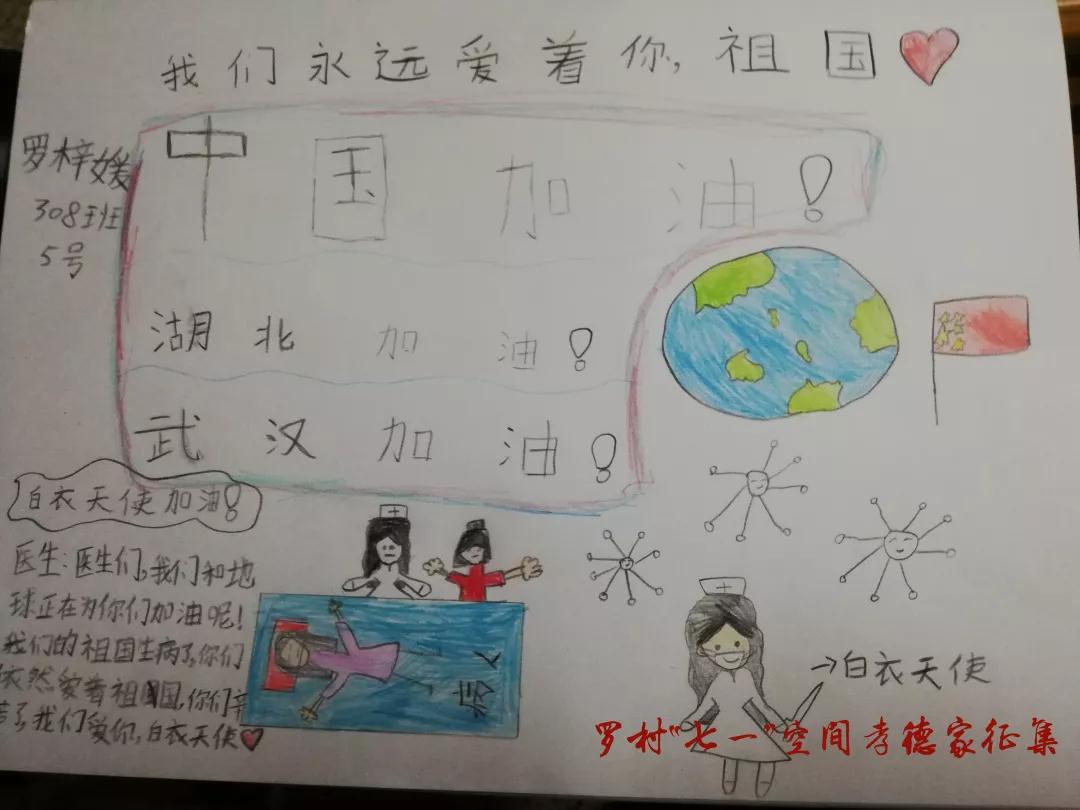 我们永远爱着你,祖国
罗梓媛
308班
5号
中国加油!
湖北加油!
武汉加油!
白衣天使加油!
医生:医生们,我们和地
球正在为你们加油呢!
我们的祖国生病了,你们
依然爱着祖国,你们辛
苦了,我们爱你,白衣天使
病人
→白衣天使
罗村"七一"空间孝德家征集